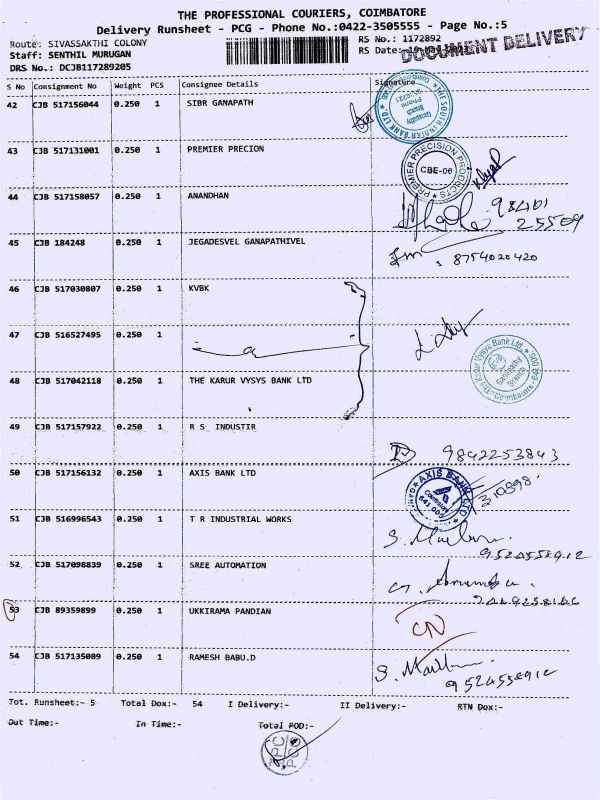 THE PROFESSIONAL COURIERS, COIMBATORE
Delivery Runsheet - PCG - Phone No.:0422-3505555 - Page No.:5
Route: SIVASSAKTHI COLONY
RS No.: 1172892
Staff: SENTHIL MURUGAN
RS Date:
DOCUMENT DELIVERY
DRS No.: DCJB117289205
S No Consignment No Weight PCS Consignee Details Signature
42 CJB 517156044 0.250 1 SIBR GANAPATH
THE SOUTH INDIAN BANK LTD. Ganapathy Branch Phone
43 CJB 517131001 0.250 1 PREMIER PRECION
PREMIER PRECISION PRODUCTS CBE-06
44 CJB 517158057 0.250 1 ANANDHAN
98401
25509
45 CJB 184248 0.250 1 JEGADESVEL GANAPATHIVEL
8754020420
46 CJB 517030807 0.250 1 KVBK
47 CJB 516527495 0.250 1
The Karur Vysya Bank Ltd., KVB Ganapathy Branch Coimbatore-
48 CJB 517042118 0.250 1 THE KARUR VYSYS BANK LTD
49 CJB 517157922 0.250 1 R S INDUSTIR
9842253843
50 CJB 517156132 0.250 1 AXIS BANK LTD
AXIS BANK LTD Coimbatore
51 CJB 516996543 0.250 1 T R INDUSTRIAL WORKS
9524558912
52 CJB 517098839 0.250 1 SREE AUTOMATION
53 CJB 89359899 0.250 1 UKKIRAMA PANDIAN
CN
54 CJB 517135089 0.250 1 RAMESH BABU.D
9524558912
Tot. Runsheet:- 5 Total Dox:- 54 I Delivery:- II Delivery:- RTN Dox:-
Out Time:- In Time:- Total POD:-